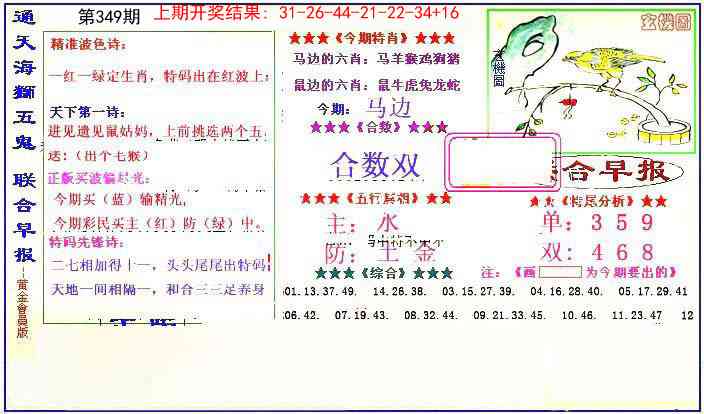 通天海獅五鬼 联合早报
---黄金會員版
第349期
上期开奖结果: 31-26-44-21-22-34+16
精准波色诗:
一红一绿定生肖,特码出在红波上;
天下第一诗:
进见遭见鼠姑妈,上前挑选两个五.
送:(出个七猴)
正版买波输尽光:
今期买(蓝)输精光,
今期彩民买主(红)防(绿)中。
特码先锋诗:
二七相加得十一,头头尾尾出特码
天地一间相隔一,和合三三足养身
★★★《今期特肖》★★★
马边的六肖:马羊猴鸡狗猪
鼠边的六肖:鼠牛虎兔龙蛇
今期:马边
★★★《合数》★★★
合数双
★★★《五行》★★
主:水
防:土金
★★★《综合》★★★
玄機圖
玄機圖
合早报
★★《特尾分析》★★
单:359
双:468
注:《画 为今期要出的》
01.13.37.49. 14.26.38. 03.15.27.39. 04.16.28.40. 05.17.29.41
06.42. 07.19.43. 08.32.44. 09.21.33.45. 10.46. 11.23.47 12